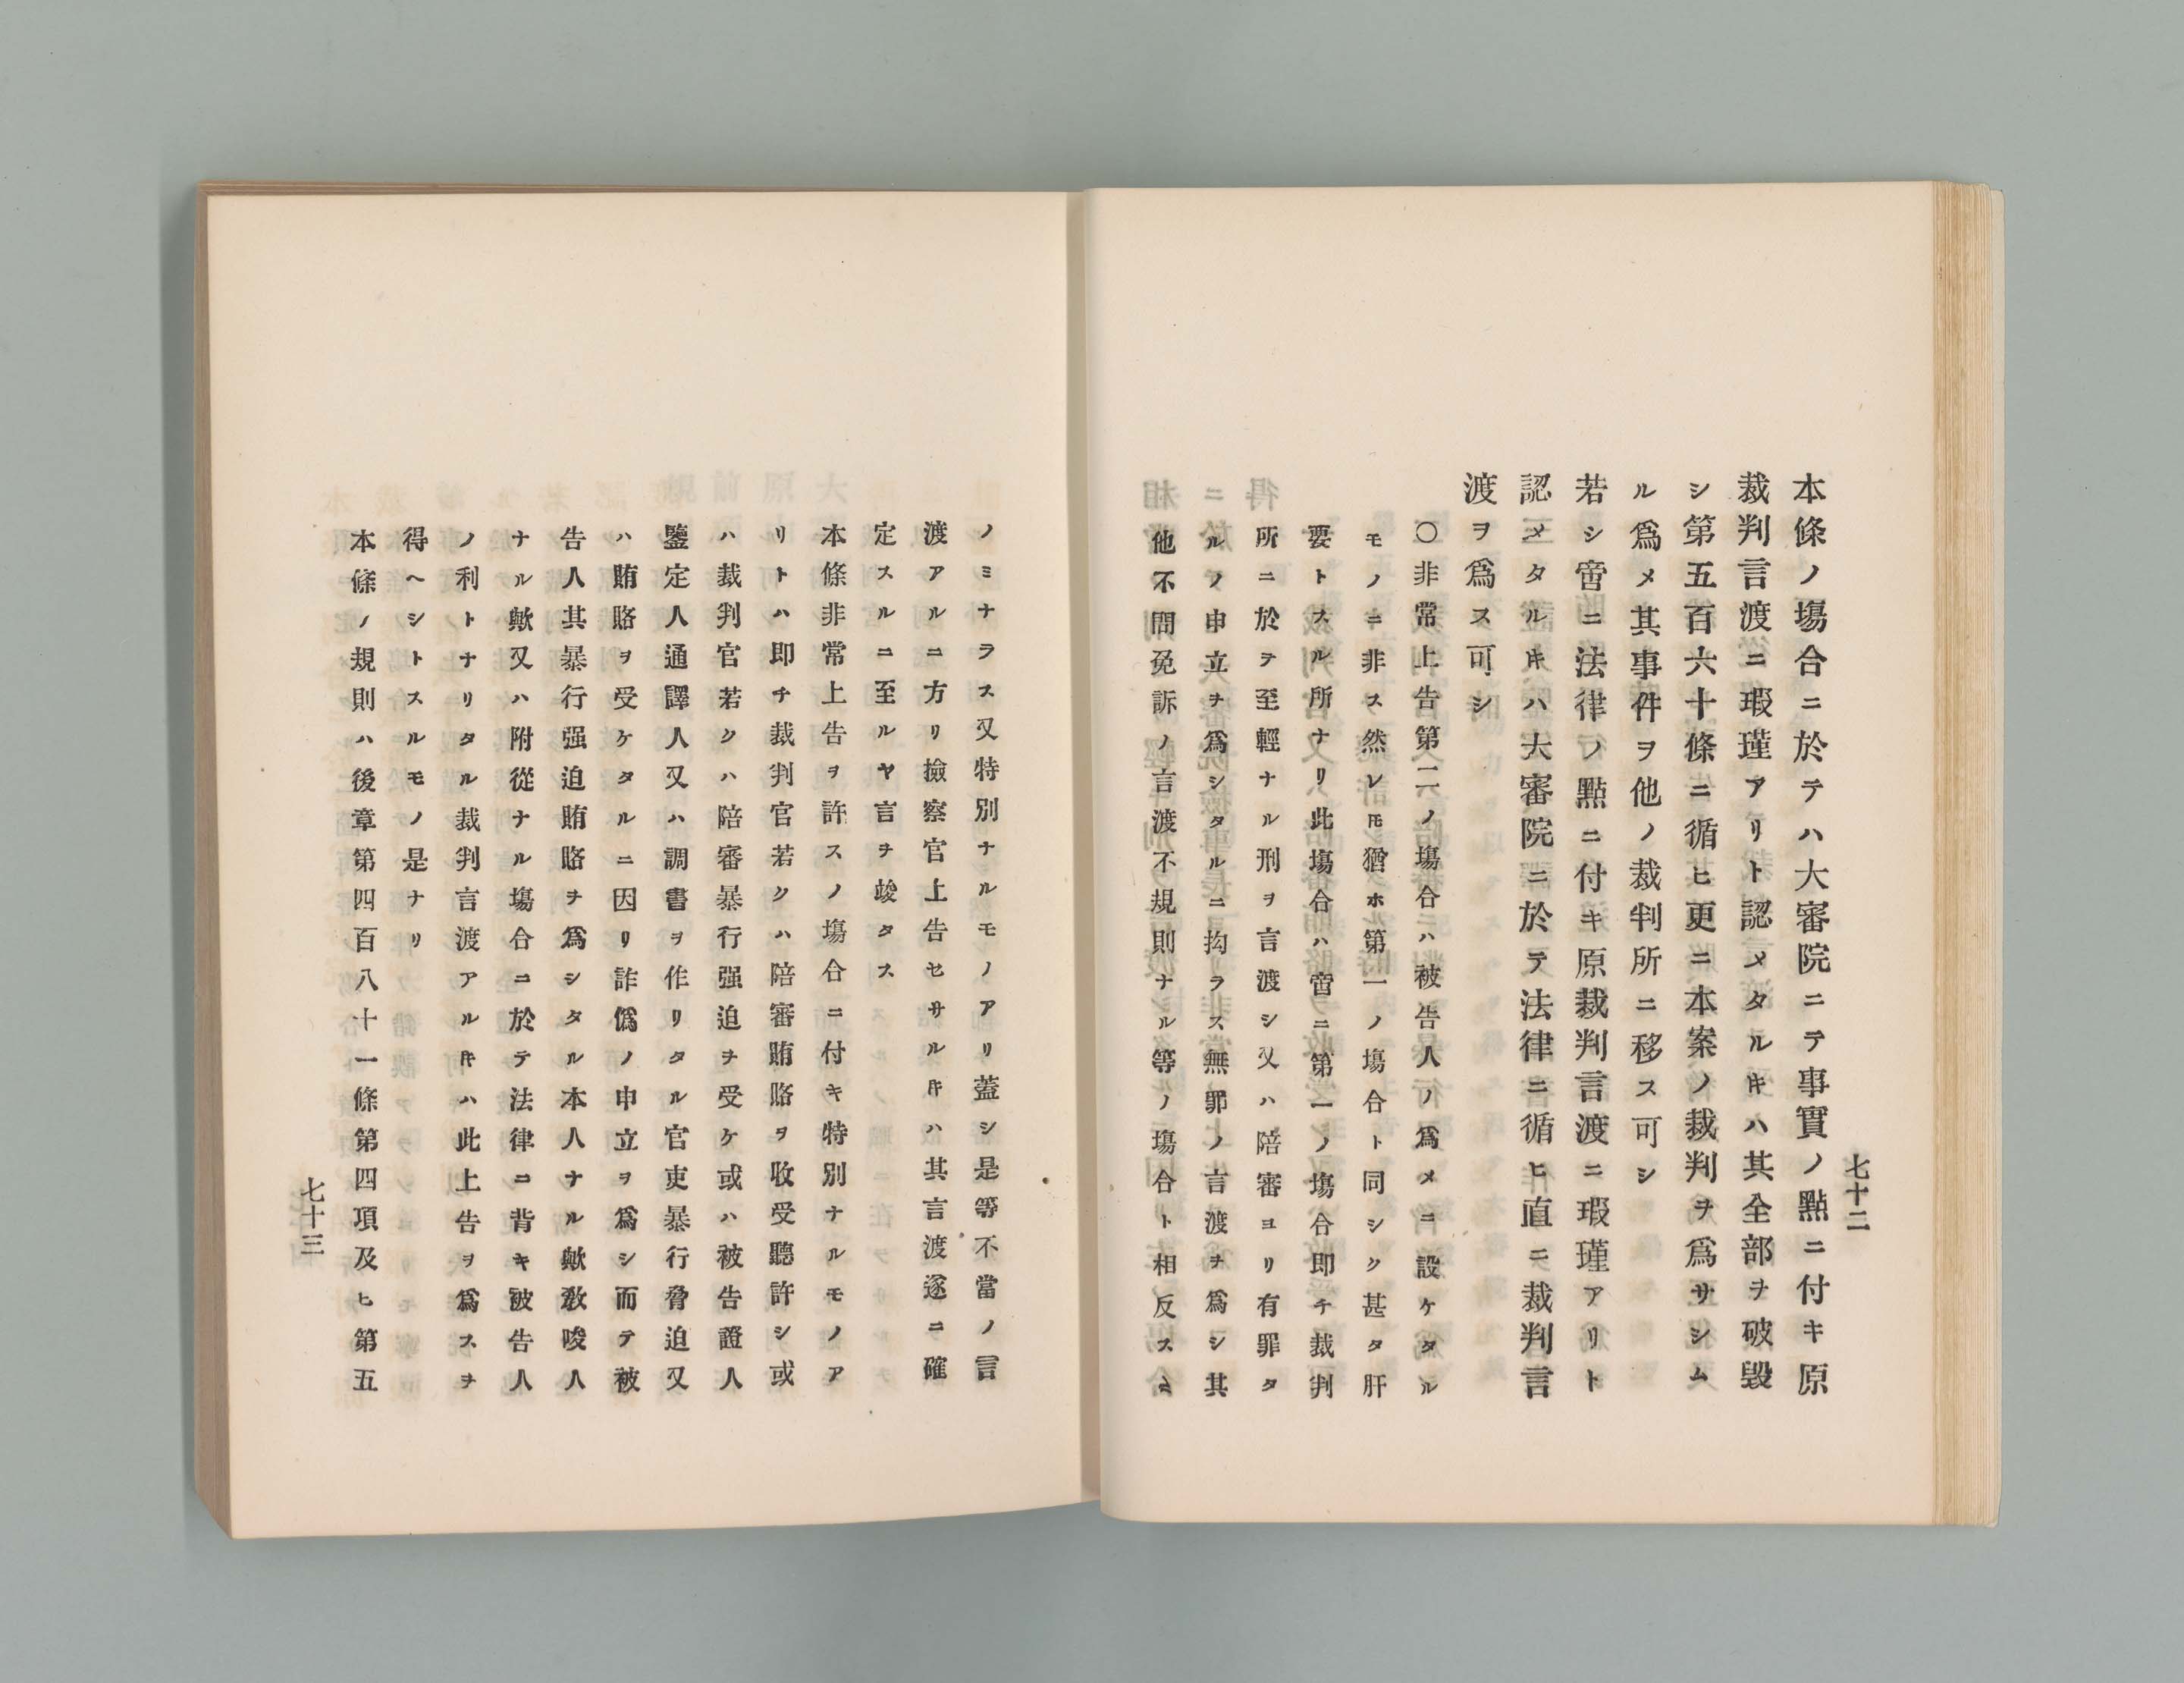 七十二
本條ノ塲合ニ於テハ大審院ニテ事實ノ點ニ付キ原
裁判言渡ニ瑕瑾アリト認メタルキハ其全部ヲ破毀
シ第五百六十條ニ循ヒ更ニ本案ノ裁判ヲ爲サシム
ル爲メ其事件ヲ他ノ裁判所ニ移ス可シ
若シ啻ニ法律ノ點ニ付キ原裁判言渡ニ瑕瑾アリト
認メタルキハ大審院ニ於テ法律ニ循ヒ直ニ裁判言
渡ヲ爲ス可シ
〇非常上告第二ノ塲合ニハ被告人ノ爲メニ設ケタル
モノニ非ス然レ𪜈猶ホ第一ノ塲合ト同シク甚タ肝
要トスル所ナリ此塲合ハ啻ニ第一ノ塲合即チ裁判
所ニ於テ至輕ナル刑ヲ言渡シ又ハ陪審ヨリ有罪タ
ルノ申立ヲ爲シタルニ拘ラス無罪ノ言渡ヲ爲シ其
他不問免訴ノ言渡不規則ナル等ノ塲合ト相反スル
ノミナラス又特別ナルモノアリ蓋シ是等不當ノ言
渡アルニ方リ撿察官上告セサルキハ其言渡遂ニ確
定スルニ至ルヤ言ヲ竣タス
本條非常上告ヲ許スノ塲合ニ付キ特別ナルモノア
リトハ即チ裁判官若クハ陪審賄賂ヲ收受聽許シ或
ハ裁判官若クハ陪審暴行强迫ヲ受ケ或ハ被告證人
鑒定人通譯人又ハ調書ヲ作リタル官吏暴行脅迫又
ハ賄賂ヲ受ケタルニ因リ詐僞ノ申立ヲ爲シ而テ被
告人其暴行强迫賄賂ヲ爲シタル本人ナル歟敎唆人
ナル歟又ハ附從ナル塲合ニ於テ法律ニ背キ被告人
ノ利トナリタル裁判言渡アルキハ此上告ヲ爲スヲ
得ヘシトスルモノ是ナリ
本條ノ規則ハ後章第四百八十一條第四項及ヒ第五
七十三